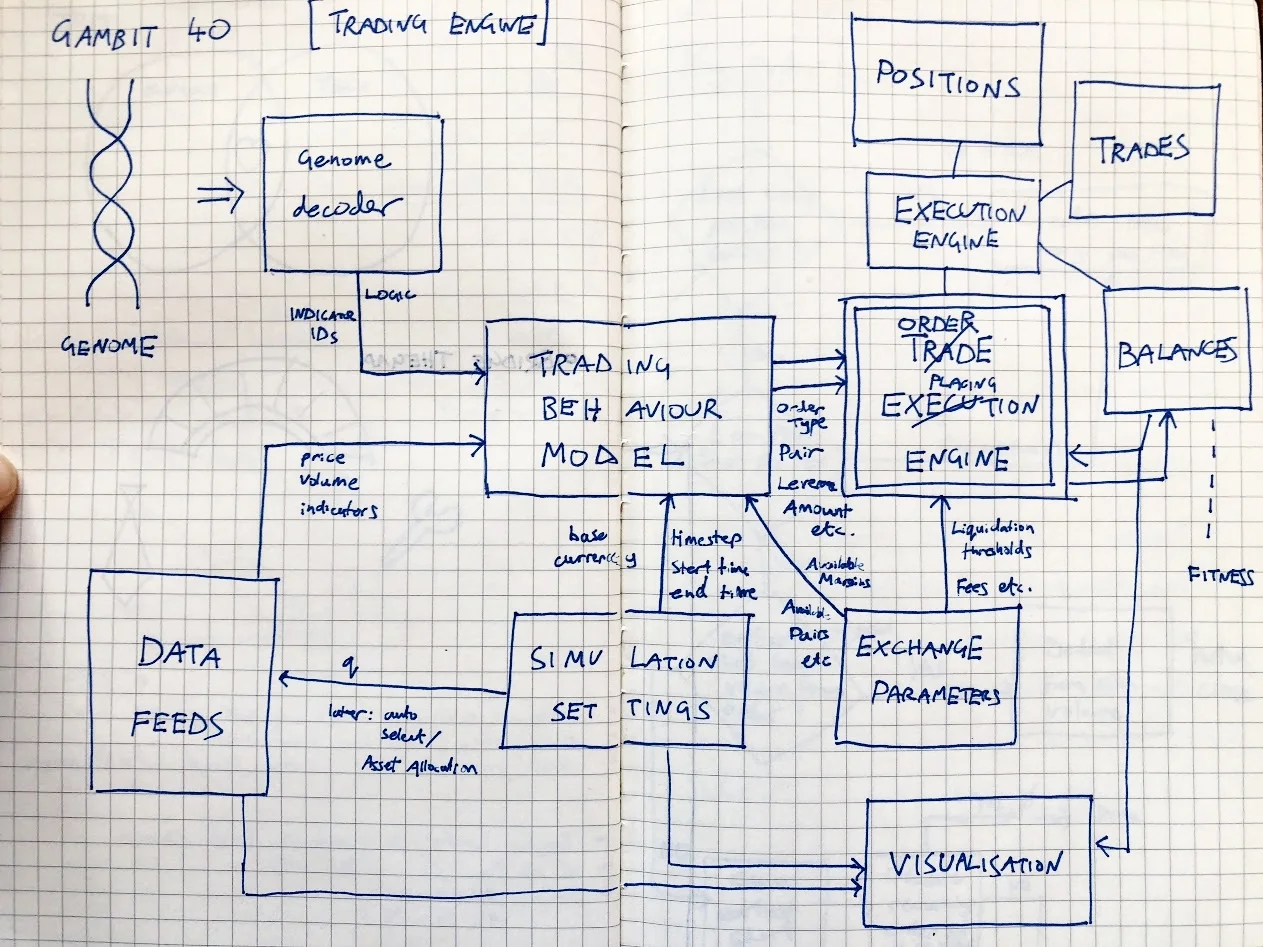 GAMBIT 40
[TRADING ENGINE]
GENOME
Genome
decoder
LOGIC
INDICATOR
IDs
TRADING
BEHAVIOUR
MODEL
price
volume
indicators
DATA
FEEDS
q
later: auto
select/
Asset Allocation
SIMULATION
SETTINGS
base
currency
timestep
start time
end time
Order
Type
Pair
Leverage
Amount
etc.
Available
Margins
Available
Pairs
etc
EXCHANGE
PARAMETERS
Liquidation
thresholds
Fees etc.
POSITIONS
TRADES
EXECUTION
ENGINE
ORDER
TRADE
PLACING
EXECUTION
ENGINE
BALANCES
FITNESS
VISUALISATION